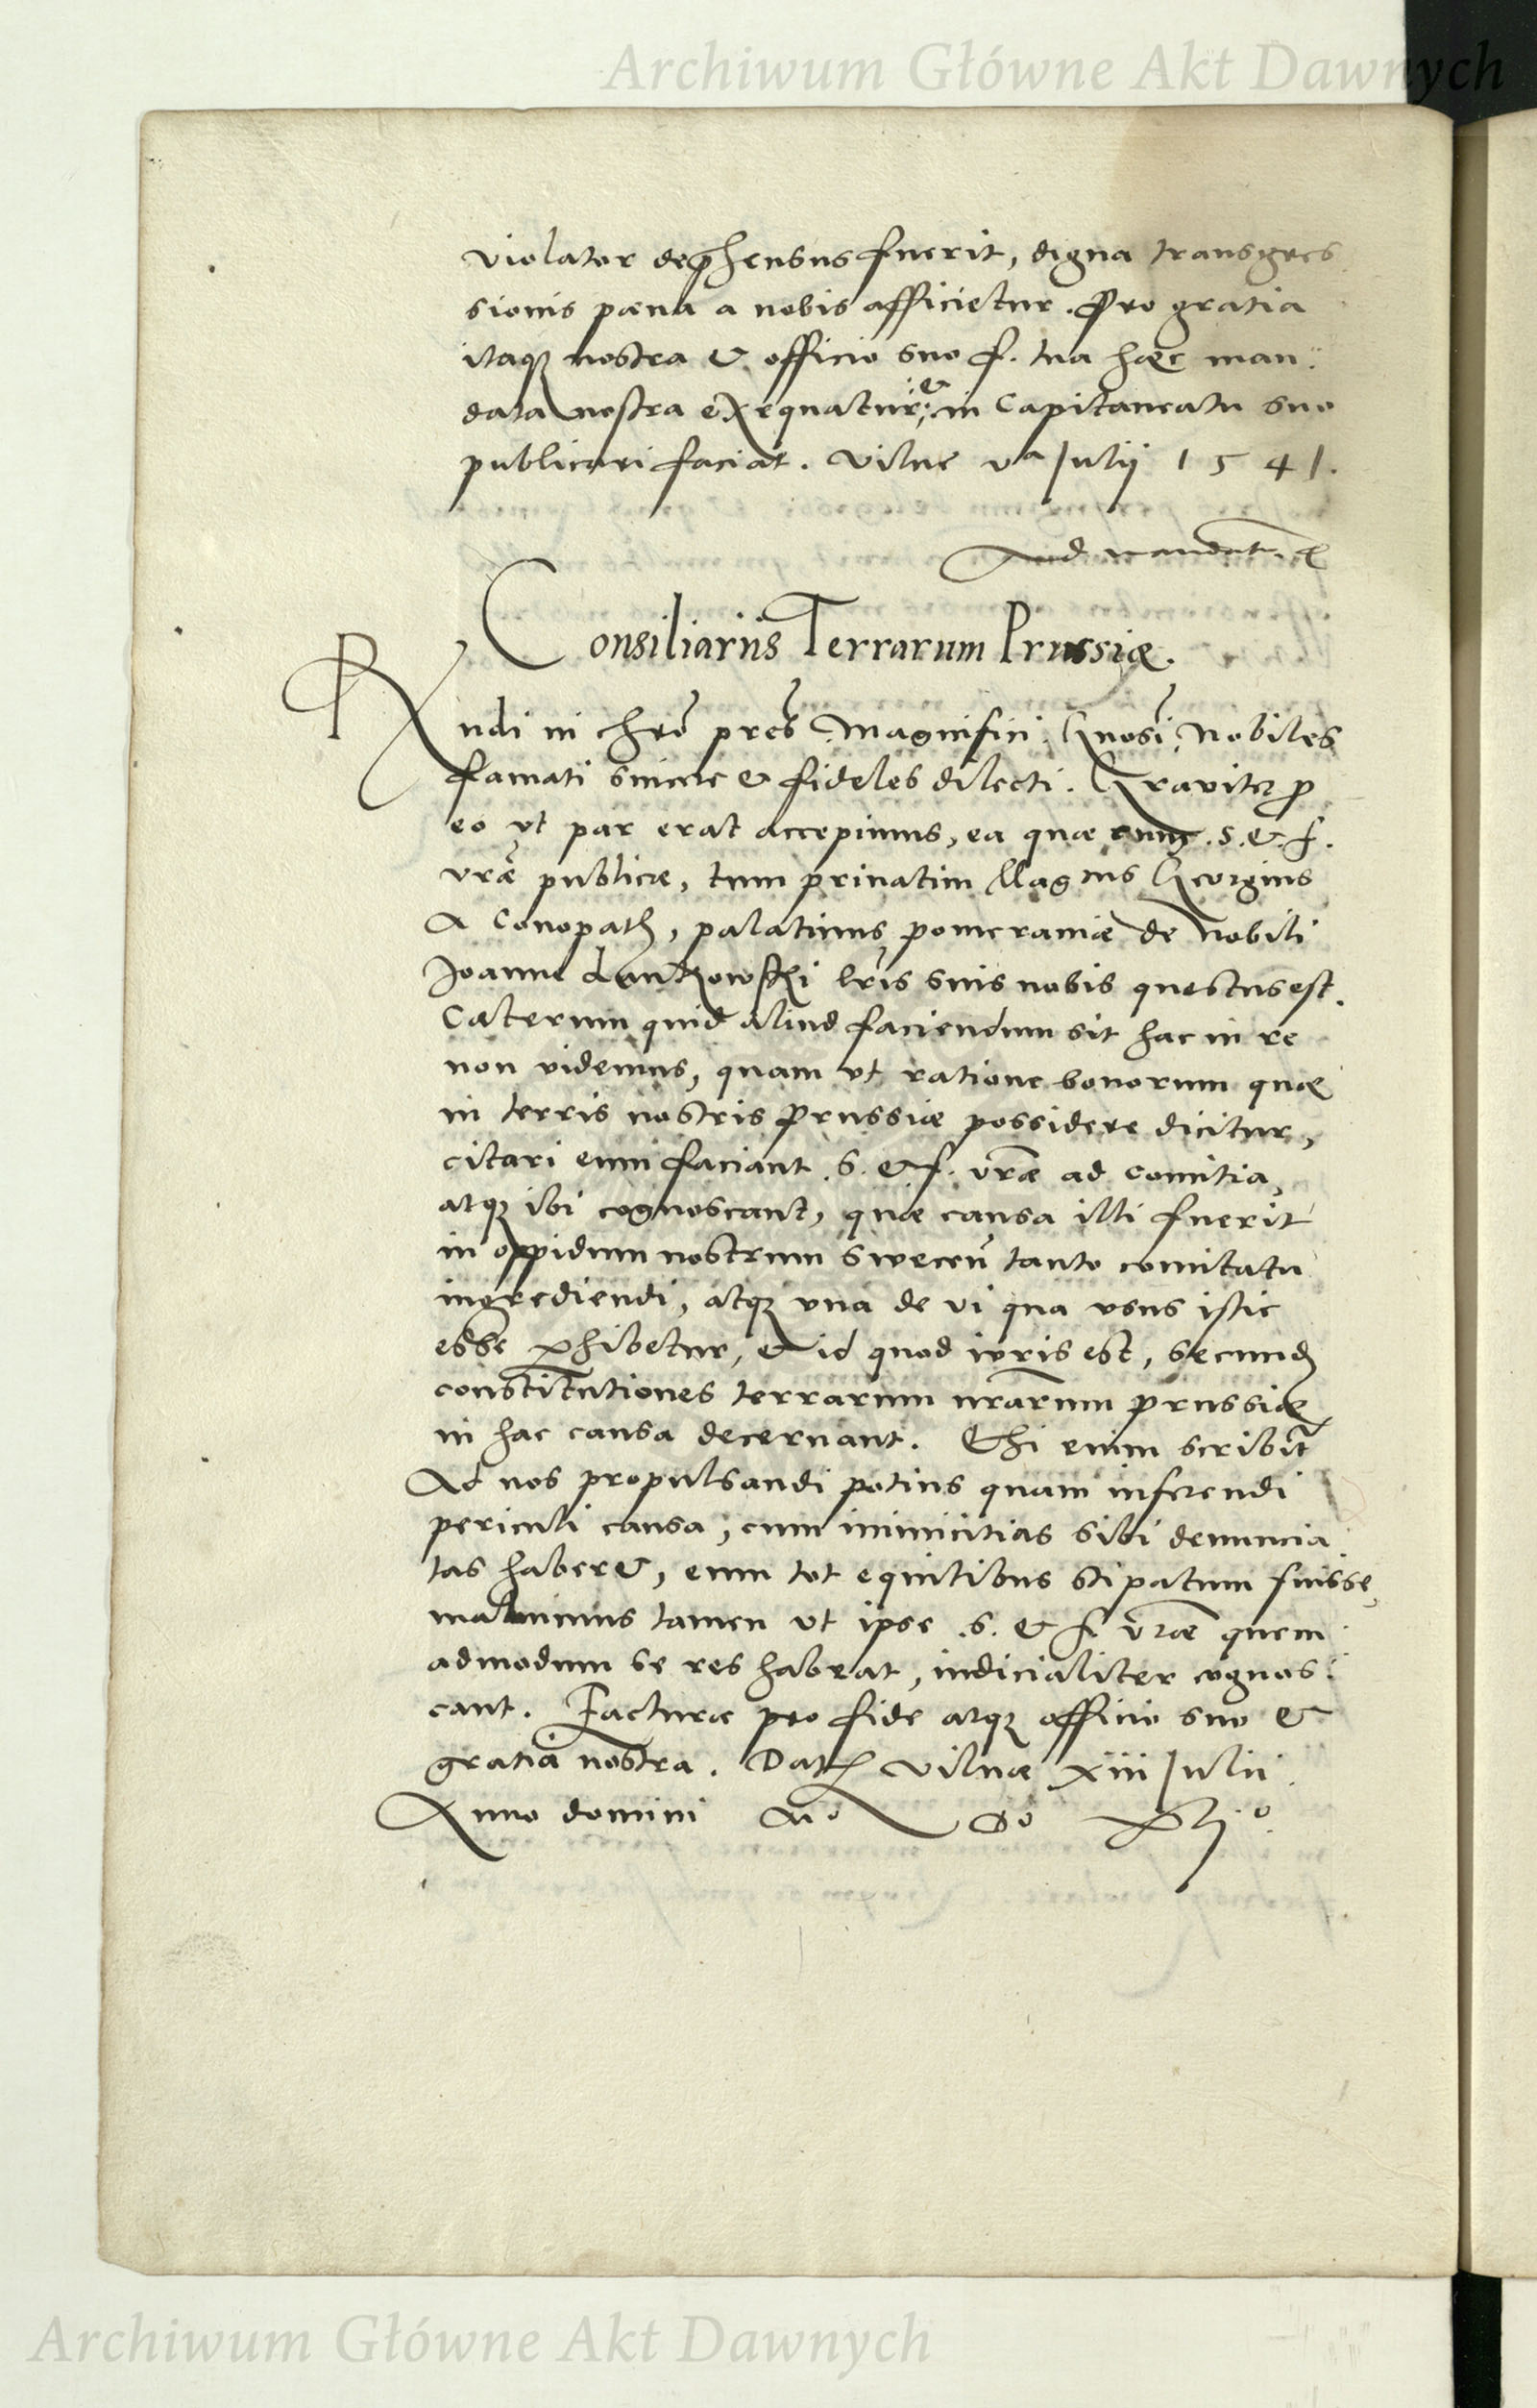 Archiwum Główne Akt Dawnych
violator deprehensus fuerit, digna transgres
sionis pœna a nobis afficietur. Pro gratia
itaq; nostra & officio suo f. tua hæc man:
data nostra exequatur: & in Capitaneatu suo
publicari faciat. Vilne va Julij 1541.
Ad mandat.
Consiliariis Terrarum Prussiæ.
Rndi in chro pres Magnifici, Gnosi, Nobiles
famati sincere & fideles dilecti. Graviter p
eo ut par erat accepimus, ea quæ cum S. & f.
vræ publice, tum privatim Mag cus Georgius
a Conopath, palatinus pomeraniæ de Nobili
Joanne lris suis nobis questus est.
Cæterum quid aliud faciendum sit hac in re
non videmus, quam ut ratione bonorum quæ
in terris nostris Prussiæ possidere dicitur,
citari eum faciant S. & f. vræ ad comitia,
atq; ibi cognoscant, quæ causa illi fuerit
in oppidum nostrum Swecen tanto comitatu
ingrediendi, atq; una de vi qua usus istic
esse phibetur, & id quod iuris est, secund
constitutiones terrarum nrarum prussiæ
in hac causa decernant. Etsi enim scribit
ad nos propulsandi potius quam inferendi
periculi causa, cum inimicitias sibi denuncia
tas haberet, eum tot equitibus stipatum fuisse,
maluimus tamen ut ipse S. & f. vræ quem
admodum se res habeat, iudicialiter cognos:
cant. Facturæ pro fide atq; officio suo &
gratia nostra. Dat Vilnæ xiii Julii
Anno domini Mo Do xljo.
Archiwum Główne Akt Dawnych